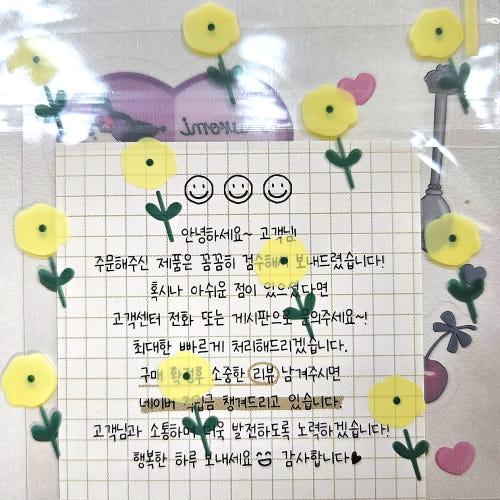 kuromi
안녕하세요~ 고객님!
주문해주신 제품은 꼼꼼히 검수해서 보내드렸습니다!
혹시나 아쉬운 점이 있으셨다면
고객센터 전화 또는 게시판으로 문의주세요~!
최대한 빠르게 처리해드리겠습니다.
구매 확정후 소중한 리뷰 남겨주시면
네이버 적립금 챙겨드리고 있습니다.
고객님과 소통하며 더욱 발전하도록 노력하겠습니다!
행복한 하루 보내세요 감사합니다